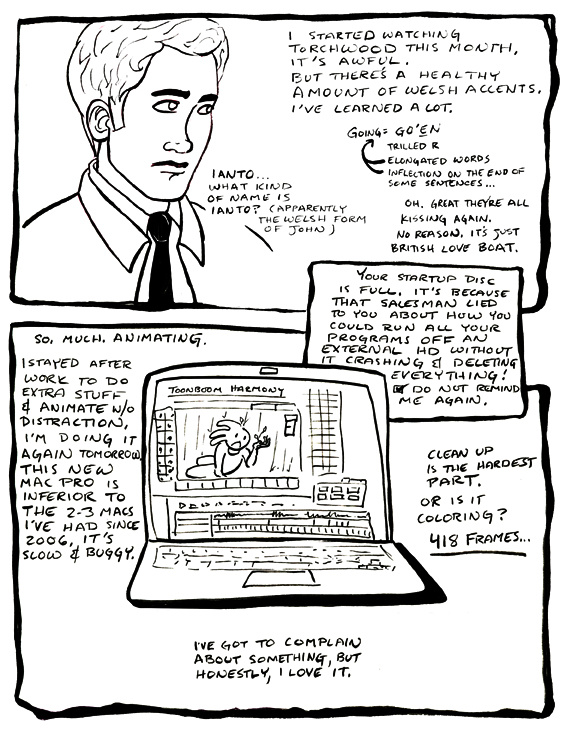 I STARTED WATCHING
TORCHWOOD THIS MONTH,
IT'S AWFUL.
BUT THERE'S A HEALTHY
AMOUNT OF WELSH ACCENTS.
I'VE LEARNED A LOT.
GOING= GO'EN
TRILLED R
ELONGATED WORDS
INFLECTION ON THE END OF
SOME SENTENCES...
IANTO...
WHAT KIND
OF NAME IS
IANTO? (APPARENTLY
THE WELSH FORM
OF JOHN)
OH. GREAT THEY'RE ALL
KISSING AGAIN.
NO REASON, IT'S JUST
BRITISH LOVE BOAT.
YOUR STARTUP DISC
IS FULL. IT'S BECAUSE
THAT SALESMAN LIED
TO YOU ABOUT HOW YOU
COULD RUN ALL YOUR
PROGRAMS OFF AN
EXTERNAL HD WITHOUT
IT CRASHING & DELETING
EVERYTHING!
DO NOT REMIND
ME AGAIN.
SO. MUCH. ANIMATING.
I STAYED AFTER
WORK TO DO
EXTRA STUFF
& ANIMATE W/O
DISTRACTION,
I'M DOING IT
AGAIN TOMORROW.
THIS NEW
MAC PRO IS
INFERIOR TO
THE 2-3 MACS
I'VE HAD SINCE
2006, IT'S
SLOW & BUGGY.
TOONBOOM HARMONY
CLEAN UP
IS THE HARDEST
PART.
OR IS IT
COLORING?
418 FRAMES...
I'VE GOT TO COMPLAIN
ABOUT SOMETHING, BUT
HONESTLY, I LOVE IT.